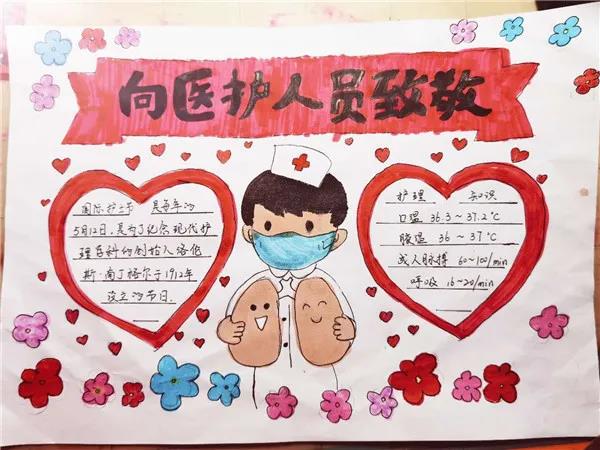 向医护人员致敬
国际护士节 是每年的
5月12日,是为了纪念现代护
理学科的创始人洛伦
斯·南丁格尔于1912年
设立的节日.
护理 知识
口温 36.3~37.2℃
腋温 36~37℃
成人脉搏 60~100/min
呼吸 16~20/min